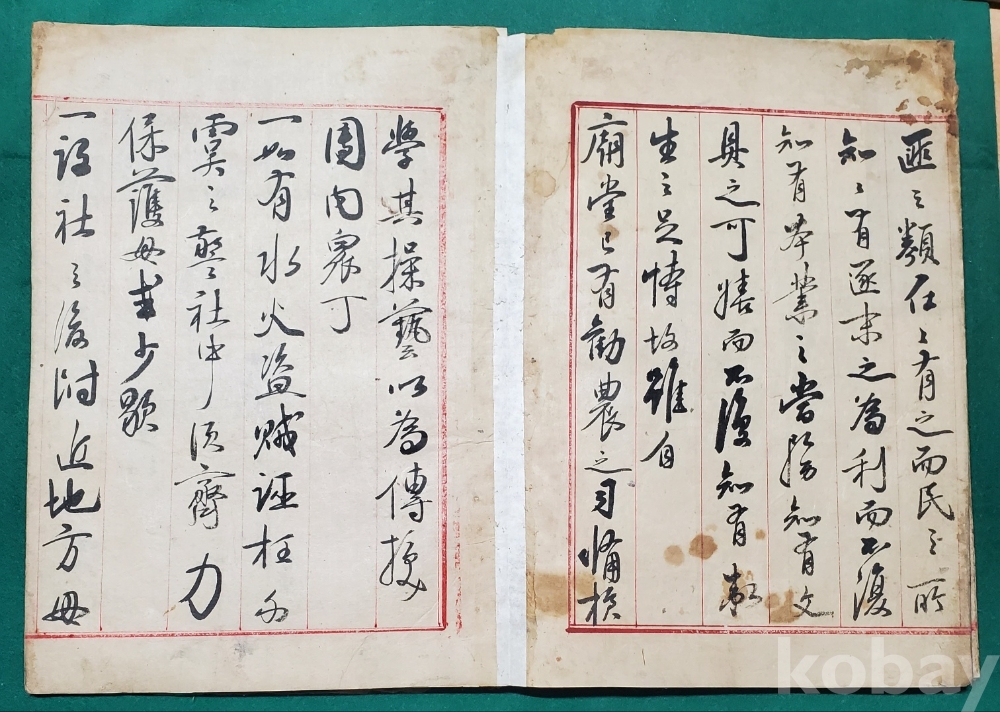 匪之類往々有之而民之所
知々有逐末之為利而不復
知有本業之當務知有文
具之可嬉而不復知有
生之足恃故雖自
廟堂已有勸農之司備
學其操藝以為傳授
團內衆丁
一如有水火盜賊誣枉不
虞之警社中須齊力
保護毋或少歇
一設社之後附近地方毋
kobay